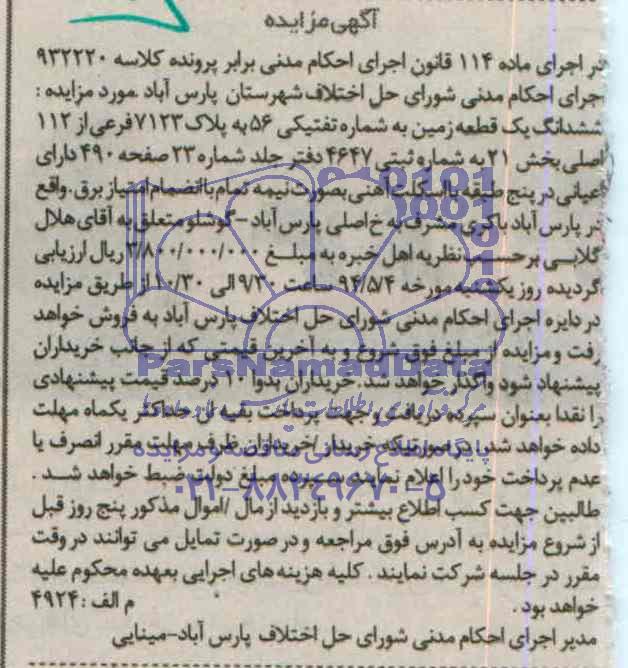 آگهی مزایده
در اجرای ماده ۱۱۴ قانون اجرای احکام مدنی برابر پرونده کلاسه ۹۳۲۲۲۰
اجرای احکام مدنی شورای حل اختلاف شهرستان پارس آباد .مورد مزایده :
ششدانگ یک قطعه زمین به شماره تفتیکی ۵۶ به پلاک ۷۱۲۳ فرعی از ۱۱۲
اصلی بخش ۲۱ به شماره ثبتی ۴۶۴۷ دفتر جلد شماره ۲۳ صفحه ۴۹۰ دارای
اعیانی در پنج طبقه با اسکلت آهنی بصورت نیمه تمام با انضمام امتیاز برق .واقع
در پارس آباد باکری مشرف به خ اصلی پارس آباد – گوشلو متعلق به آقای هلال
گلابی برحسب نظریه اهل خبره به مبلغ ۳/۸۰۰/۰۰۰/۰۰۰ ریال ارزیابی
گردیده روز یکشنبه مورخه ۹۴/۵/۴ ساعت ۹/۳۰ الی ۱۰/۳۰ از طریق مزایده
در دایره اجرای احکام مدنی شورای حل اختلاف پارس آباد به فروش خواهد
رفت و مزایده از مبلغ فوق شروع و به آخرین قیمتی که از جانب خریداران
پیشنهاد شود واگذار خواهد شد. خریداران بدوا ۱۰ درصد قیمت پیشنهادی
را نقدا بعنوان سپرده دریافت و جهت پرداخت بقیه آن حداکثر یکماه مهلت
داده خواهد شد . در صورتیکه خریدار /خریداران ظرف مهلت مقرر انصرف یا
عدم پرداخت خود را اعلام نمایند سپرده مبلغ دولت ضبط خواهد شد .
طالبین جهت کسب اطلاع بیشتر و بازدید از مال /اموال مذکور پنج روز قبل
از شروع مزایده به آدرس فوق مراجعه و در صورت تمایل می توانند در وقت
مقرر در جلسه شرکت نمایند . کلیه هزینه های اجرایی بعهده محکوم علیه
خواهد بود . م الف : ۴۹۲۴
مدیر اجرای احکام مدنی شورای حل اختلاف پارس آباد-مینایی
ParsNamadData
پایگاه اطلاع رسانی مناقصه و مزایده
۰۲۱-۸۸۳۴۹۶۷۰-۵